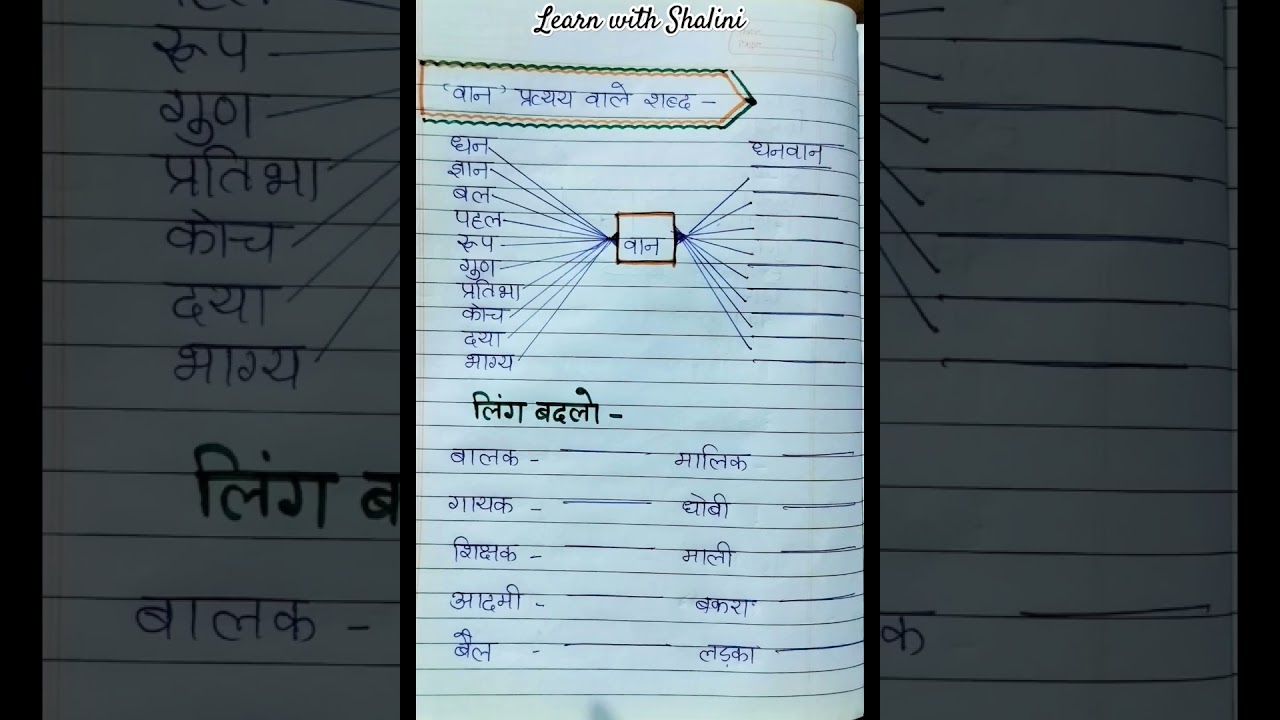 Learn with Shalini
'वान' प्रत्यय वाले शब्द -
धन
धनवान
ज्ञान
बल
पहल
रूप
वान
गुण
प्रतिभा
कोच
दया
भाग्य
लिंग बदलो -
बालक - मालिक
गायक - धोबी
शिक्षक - माली
आदमी - बकरा
बैल - लड़का